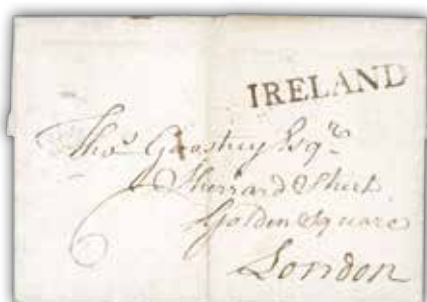 IRELAND
Thos. Esqr.
Sherrard Street
Golden Square
London
6